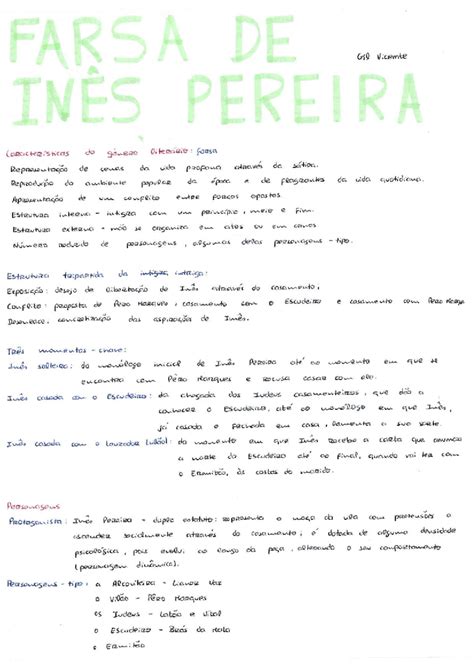 FARSA DE
Gil Vicente
INÊS PEREIRA
Características do género literário: farsa
Representação de cenas da vida profana através da sátira.
Reprodução do ambiente popular da época e de flagrantes da vida quotidiana.
Apresentação de um conflito entre forças opostas
Estrutura interna - intriga com um princípio, meio e fim.
Estrutura externa - não se organiza em atos ou em cenas
Número reduzido de personagens, algumas delas personagens-tipo.
Estrutura da intriga:
Exposição: desejo de libertação de Inês através do casamento;
Conflito: proposta de Pero Marques, casamento com o Escudeiro e casamento com Pero Marques
Desenlace: concretização das aspirações de Inês.
Três momentos-chave:
Inês solteira: do monólogo inicial de Inês Pereira até ao momento em que se
encontra com Pêro Marques e recusa casar com ele.
Inês casada com o Escudeiro: da chegada dos Judeus casamenteiros, que dão a
conhecer o Escudeiro, até ao monólogo em que Inês,
já casada e fechada em casa, lamenta a sua sorte.
Inês casada com o Lavrador: do momento em que Inês recebe a carta que anuncia
a morte do Escudeiro até ao final, quando vai ter com
o Ermitão, às costas do marido.
Personagens
Protagonista: Inês Pereira - duplo estatuto: representa a moça da vila com pretensões a
ascender socialmente através do casamento; é dotada de alguma densidade
psicológica, pois evolui ao longo da peça, alterando o seu comportamento
(personagem dinâmica).
Personagens-tipo: a Alcoviteira - Lianor Vaz
o Vilão - Pêro Marques
os Judeus - Latão e Vidal
o Escudeiro - Brás da Mata
o Ermitão